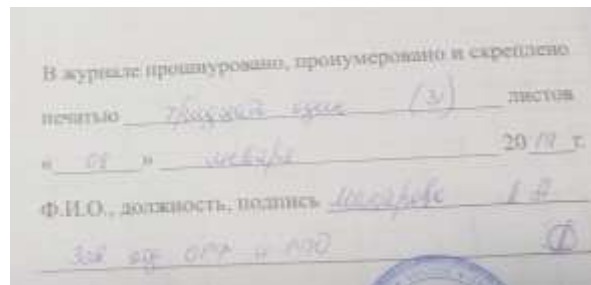 В журнале прошнуровано, пронумеровано и скреплено
печатью тридцать один (31) листов
« 09 » января 2019 г.
Ф.И.О., должность, подпись
Зав отд и